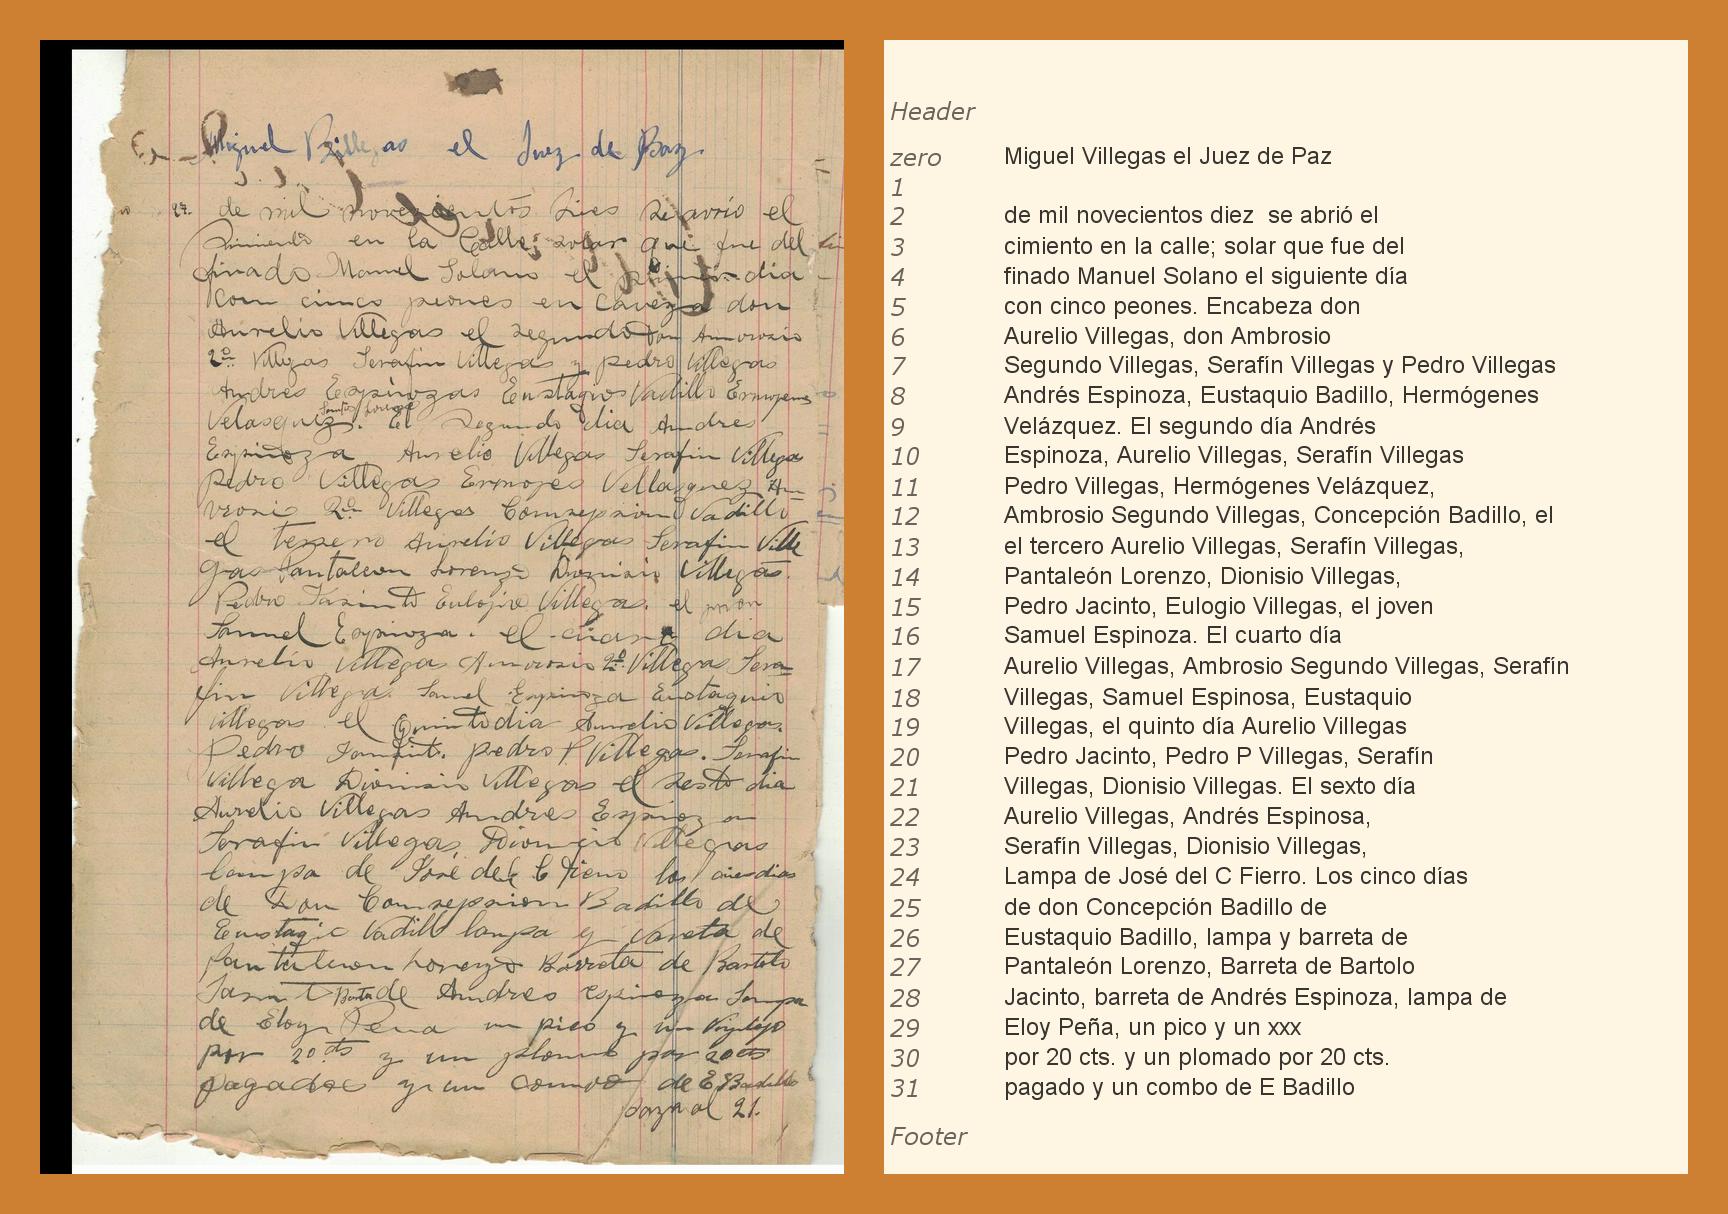 Miguel Villegas el Juez de Paz
de mil novecientos dies se avrio el
Simiento en la Calle; solar que fue del
finado Manuel Solano el dia
Com cinco peones en Caveza don
Aurelio Villegas el segundo Don Amvrosio
2º Villegas Serafin Villegas y pedro Villegas
Andres Espinozas Eustagios Vadillo Ermogenes
Velasquez. El Segundo dia Andres
Espinoza Aurelio Villegas Serafin Villegas
Pedro Villegas Ermojes Vellasquez Am
vrosi 2º Villegas Comsepsion Vadillo
el tersero Aurelio Villegas Serafin Ville
gas Pantaleon Lorenzo Dionisio Villegas.
Pedro Jasinto Eulojio Villegas. el
Samuel Espinoza. el cuarto dia
Aurelio Villegas Amvrosio 2º Villegas Sera
fin Villegas. Samuel Espinoza Eustaquio
villegas el Quinto dia Aurelio Villegas.
Pedro pedro P Villegas. Serafin
Villega Dionisio Villegas el sesto dia
Aurelio Villegas Andres Espinoza
Serafin Villegas Dionicio Villegas
lampa de José del C Fierro los dias
de Don Comsepsion Badillo de
Eustaqio Vadillo lampa y vareta de
Pantaleon Lorenzo Barreta de Bartolo
Jasinto de Andres espinoza lampa
de Eloy Pena un pico y un
por 20 cts y un plomo por 20 cts
pagados y un comvo de E Badillo
pasa al 21.
Header
zero Miguel Villegas el Juez de Paz
1
2 de mil novecientos diez se abrió el
3 cimiento en la calle; solar que fue del
4 finado Manuel Solano el siguiente día
5 con cinco peones. Encabeza don
6 Aurelio Villegas, don Ambrosio
7 Segundo Villegas, Serafín Villegas y Pedro Villegas
8 Andrés Espinoza, Eustaquio Badillo, Hermógenes
9 Velázquez. El segundo día Andrés
10 Espinoza, Aurelio Villegas, Serafín Villegas
11 Pedro Villegas, Hermógenes Velázquez,
12 Ambrosio Segundo Villegas, Concepción Badillo, el
13 el tercero Aurelio Villegas, Serafín Villegas,
14 Pantaleón Lorenzo, Dionisio Villegas,
15 Pedro Jacinto, Eulogio Villegas, el joven
16 Samuel Espinoza. El cuarto día
17 Aurelio Villegas, Ambrosio Segundo Villegas, Serafín
18 Villegas, Samuel Espinosa, Eustaquio
19 Villegas, el quinto día Aurelio Villegas
20 Pedro Jacinto, Pedro P Villegas, Serafín
21 Villegas, Dionisio Villegas. El sexto día
22 Aurelio Villegas, Andrés Espinosa,
23 Serafín Villegas, Dionisio Villegas,
24 Lampa de José del C Fierro. Los cinco días
25 de don Concepción Badillo de
26 Eustaquio Badillo, lampa y barreta de
27 Pantaleón Lorenzo, Barreta de Bartolo
28 Jacinto, barreta de Andrés Espinoza, lampa de
29 Eloy Peña, un pico y un xxx
30 por 20 cts. y un plomado por 20 cts.
31 pagado y un combo de E Badillo
Footer